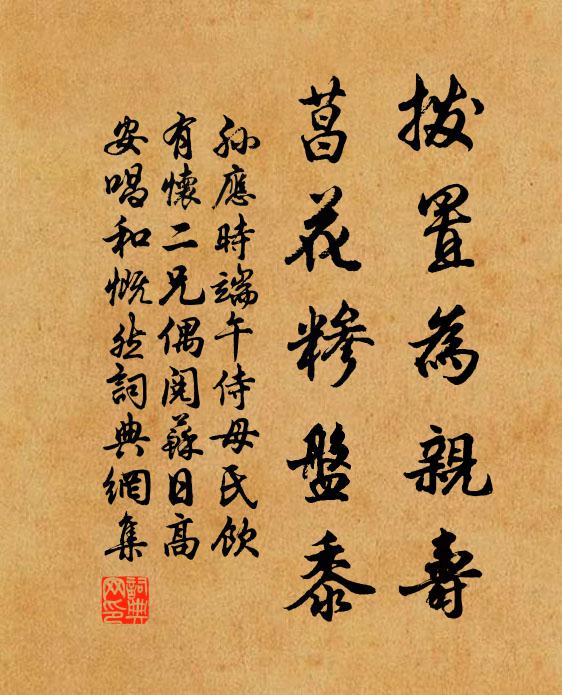 拨置為親壽
菖花糝盤黍
孙應時端午侍母氏飲
有懷二兄偶閱蘇日高
安唱和慨然詞典網集
詞典
网印